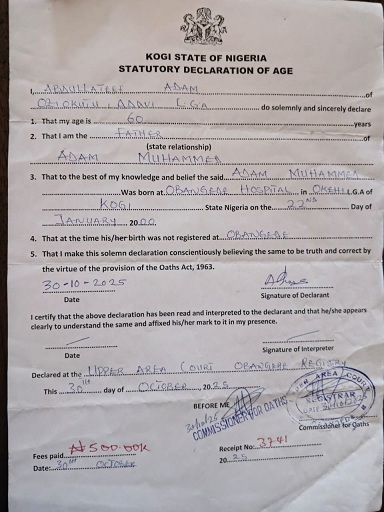 KOGI STATE OF NIGERIA
STATUTORY DECLARATION OF AGE
I, ABDULLATEEF ADAM of
OZIOKUTU, ADAVI L.G.A do solemnly and sincerely declare
1. That my age is 60 years
2. That I am the FATHER of
(state relationship)
ADAM MUHAMMED
3. That to the best of my knowledge and belief the said ADAM MUHAMMED
Was born at OBANGEDE HOSPITAL in OKEHI L.G.A of
KOGI State Nigeria on the 22ND Day of
JANUARY 2000
4. That at the time his/her birth was not registered at OBANGEDE
5. That I make this solemn declaration conscientiously believing the same to be truth and correct by
the virtue of the provision of the Oaths Act, 1963.
30-10-2025
Date
Signature of Declarant
I certify that the above declaration has been read and interpreted to the declarant and that he/she appears
clearly to understand the same and affixed his/her mark to it in my presence.
Date
Signature of Interpreter
Declared at the UPPER AREA COURT OBANGEDE REGISTRY
This 30TH day of OCTOBER, 2025
BEFORE ME
30/10/25
COMMISSIONER FOR OATHS
AREA COURT
REGISTRAR
Commissioner for Oaths
Fees paid ₦500.00K
Receipt No: 3741
Date: 30TH OCTOBER
2025